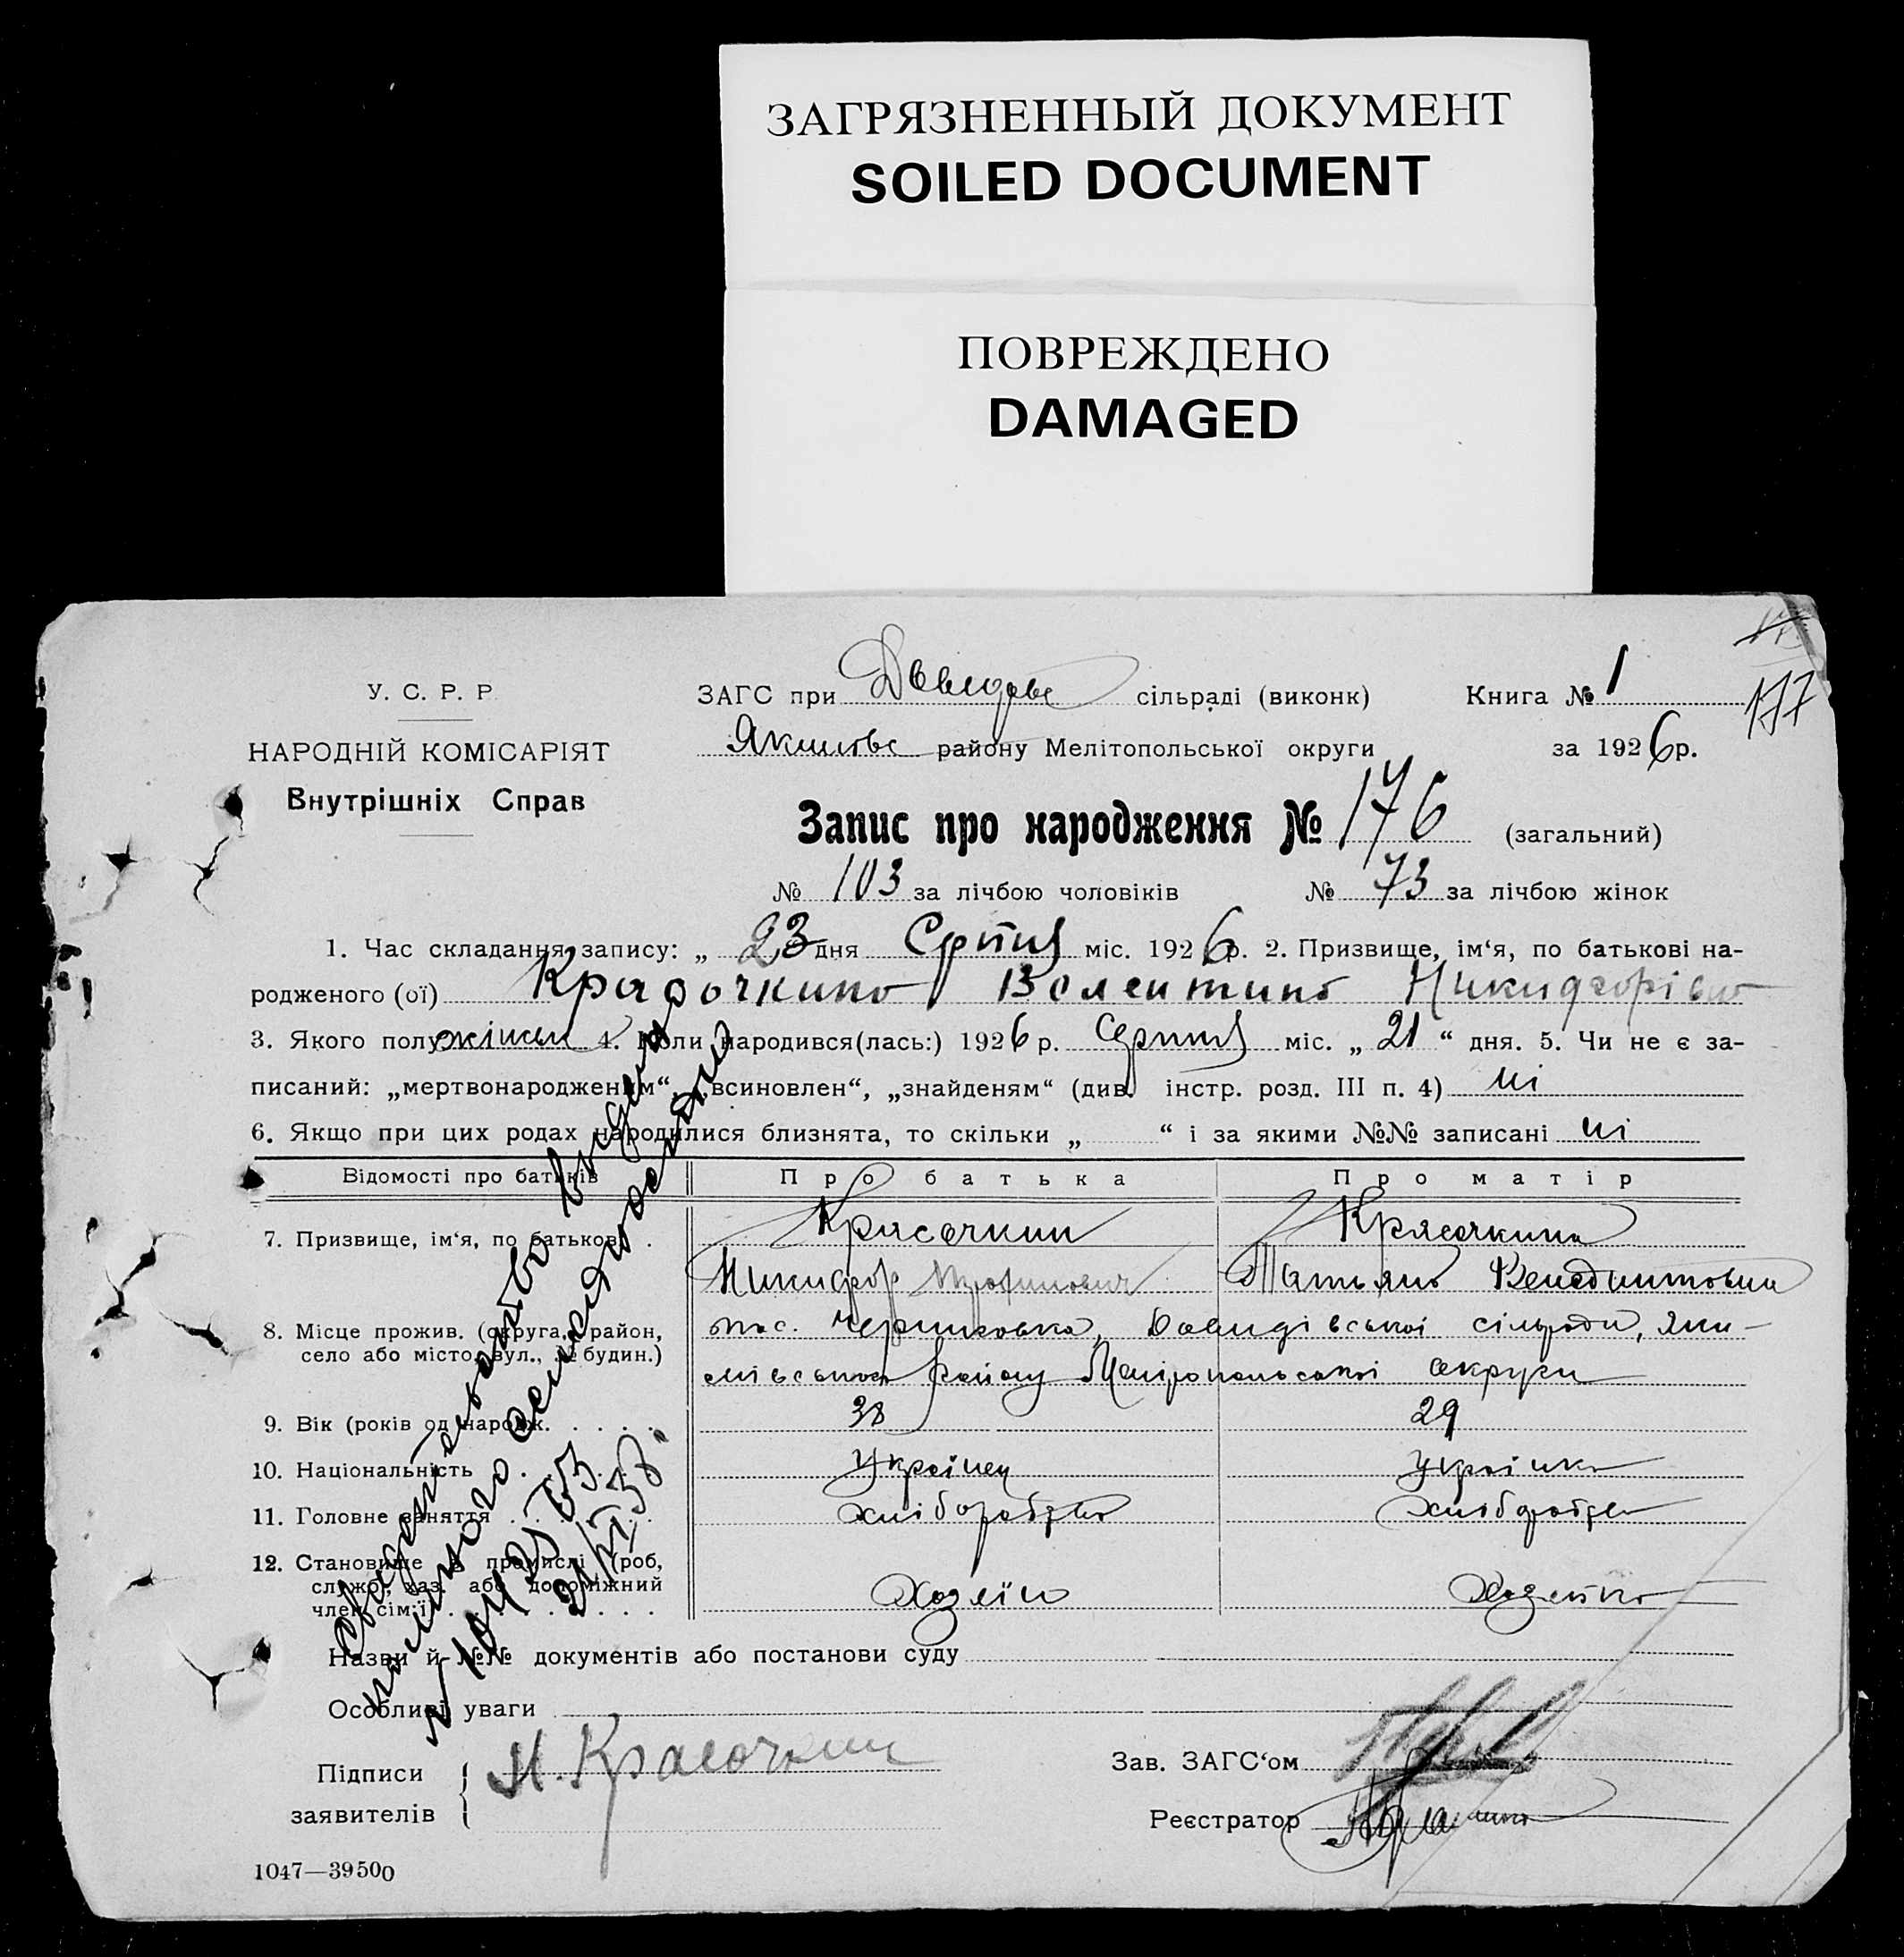 ЗАГРЯЗНЕННЫЙ ДОКУМЕНТ
SOILED DOCUMENT
ПОВРЕЖДЕНО
DAMAGED
177
У. С. Р. Р.
НАРОДНІЙ КОМІСАРІЯТ
Внутрішніх Справ
ЗАГС при сільраді (виконк)
Книга № 1
району Мелітопольської округи
за 1926 р.
Запис про народження № 176 (загальний)
№ 103 за лічбою чоловіків № 73 за лічбою жінок
1. Час складання запису: „ 23 дня Серпня міс. 1926 р. 2. Призвище, ім‘я, по батькові на-
родженого (ої) Красочкина Валентина Никифорівна
3. Якого полу жіночи 4. Коли народився(лась:) 1926 р. Серпня міс. „ 21 “ дня. 5. Чи не є за-
писаний: „мертвонародженям“, „всиновлен“, „знайденям“ (див. інстр. розд. III п. 4) ні
6. Якщо при цих родах народилися близнята, то скільки „ “ і за якими №№ записані ні
Відомості про батьків Про батька Про матір
7. Призвище, ім‘я, по батькові . Красочкин Красочкина
Никифор Татьяна Венедиктовна
8. Місце прожив. (округа, район,
село або місто, вул., № будин.)
пос. Давидівської сільради, Яки-
мівського району Меліропольської округи
9. Вік (років од народж. . . . . . 38 29
10. Національність . . . . Українец Українка
11. Головне заняття . . . . . хліборобство хліборобство
12. Становище в промислі (роб,
служб, хаз. або допоміжний
член сім‘ї) . . . . . . . . Хозяїн Хозяйка
Назви й №№ документів або постанови суду
Особливі уваги
Підписи
заявителів
Н. Красочкин
Зав. ЗАГС‘ом
Реєстратор
1047—39500
Свидетельство выдано